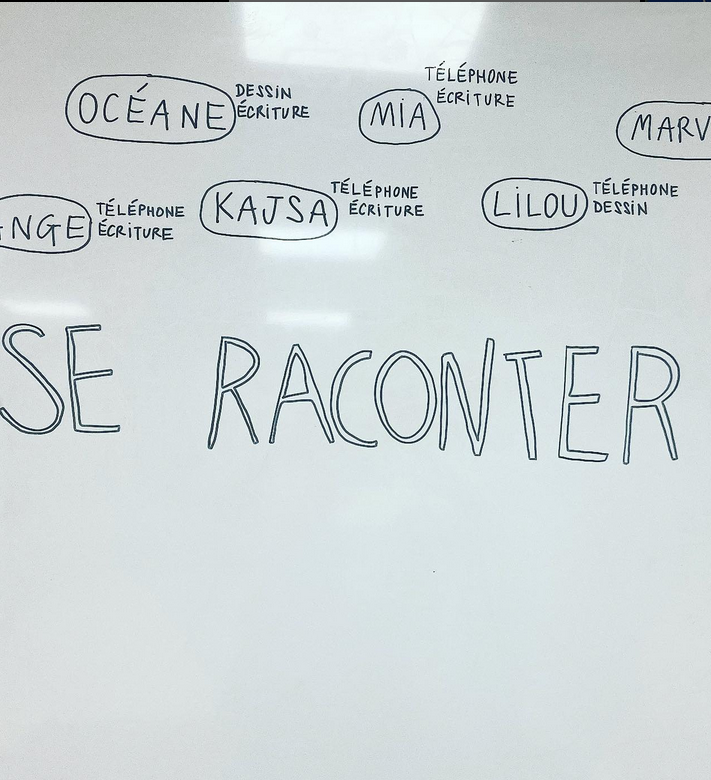 OCÉANE
DESSIN
ÉCRITURE
MIA
TÉLÉPHONE
ÉCRITURE
MARV
NGE
TÉLÉPHONE
ÉCRITURE
KAJSA
TÉLÉPHONE
ÉCRITURE
LILOU
TÉLÉPHONE
DESSIN
SE RACONTER